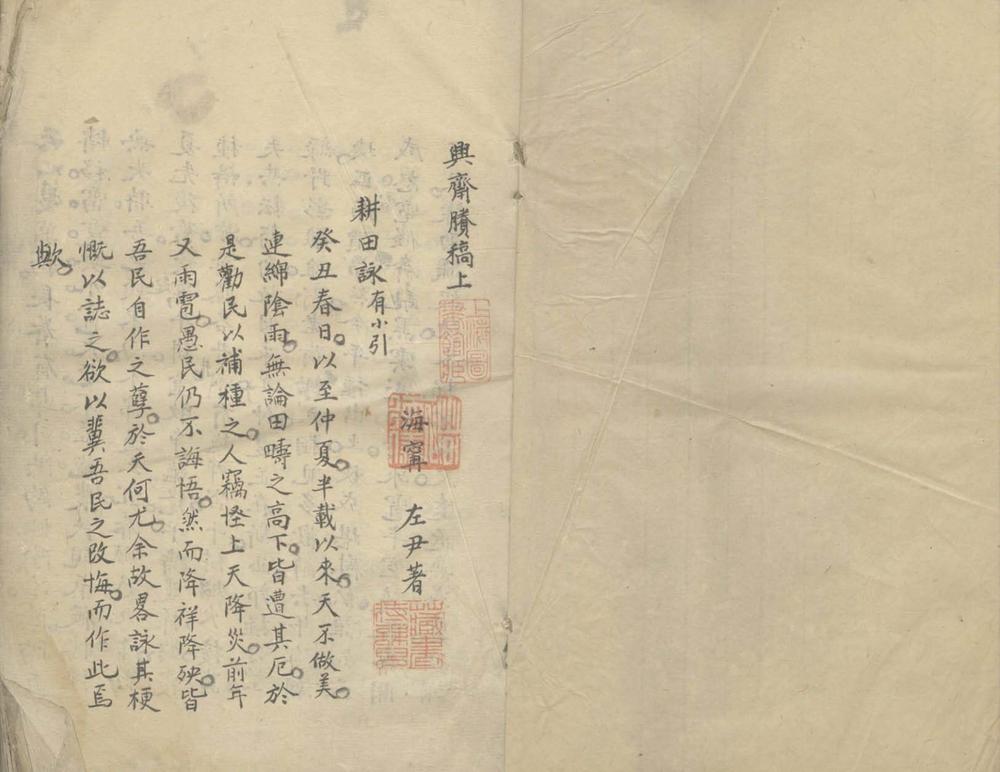 興齋賸稿上
海寧　左尹著
耕田詠有小引
癸丑春日。以至仲夏。半載以來。天不做美。
連綿陰雨。無論田疇之高下。皆遭其厄。於
是勸民以補種之。人竊怪上天降災。前年
又雨雹。愚民仍不誨悟。然而降祥降殃。皆
吾民自作之孽。於天何尤。余故畧詠其梗
慨以誌之。欲以冀吾民之改悔。而作此焉
歟。
上海圖
藏書